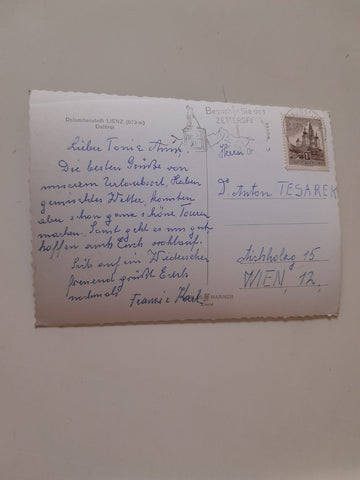 Dolomitenstadt LIENZ (673 m)
Osttirol
Besuchen Sie den
ZETTERSFELD
Lieber Toni e Anni,
Die besten Grüße von
unserem Urlaubsort. Haben
gemischtes Wetter konnten
aber schon ganz schöne Touren
machen. Sonst geht es uns gut
hoffen auch Euch wohlauf.
auf ein Wiedersehen
freuend grüßt Euch
nochmals Franzi e Karl
Herrn
Dr. Anton TESAREK
15
WIEN 12.